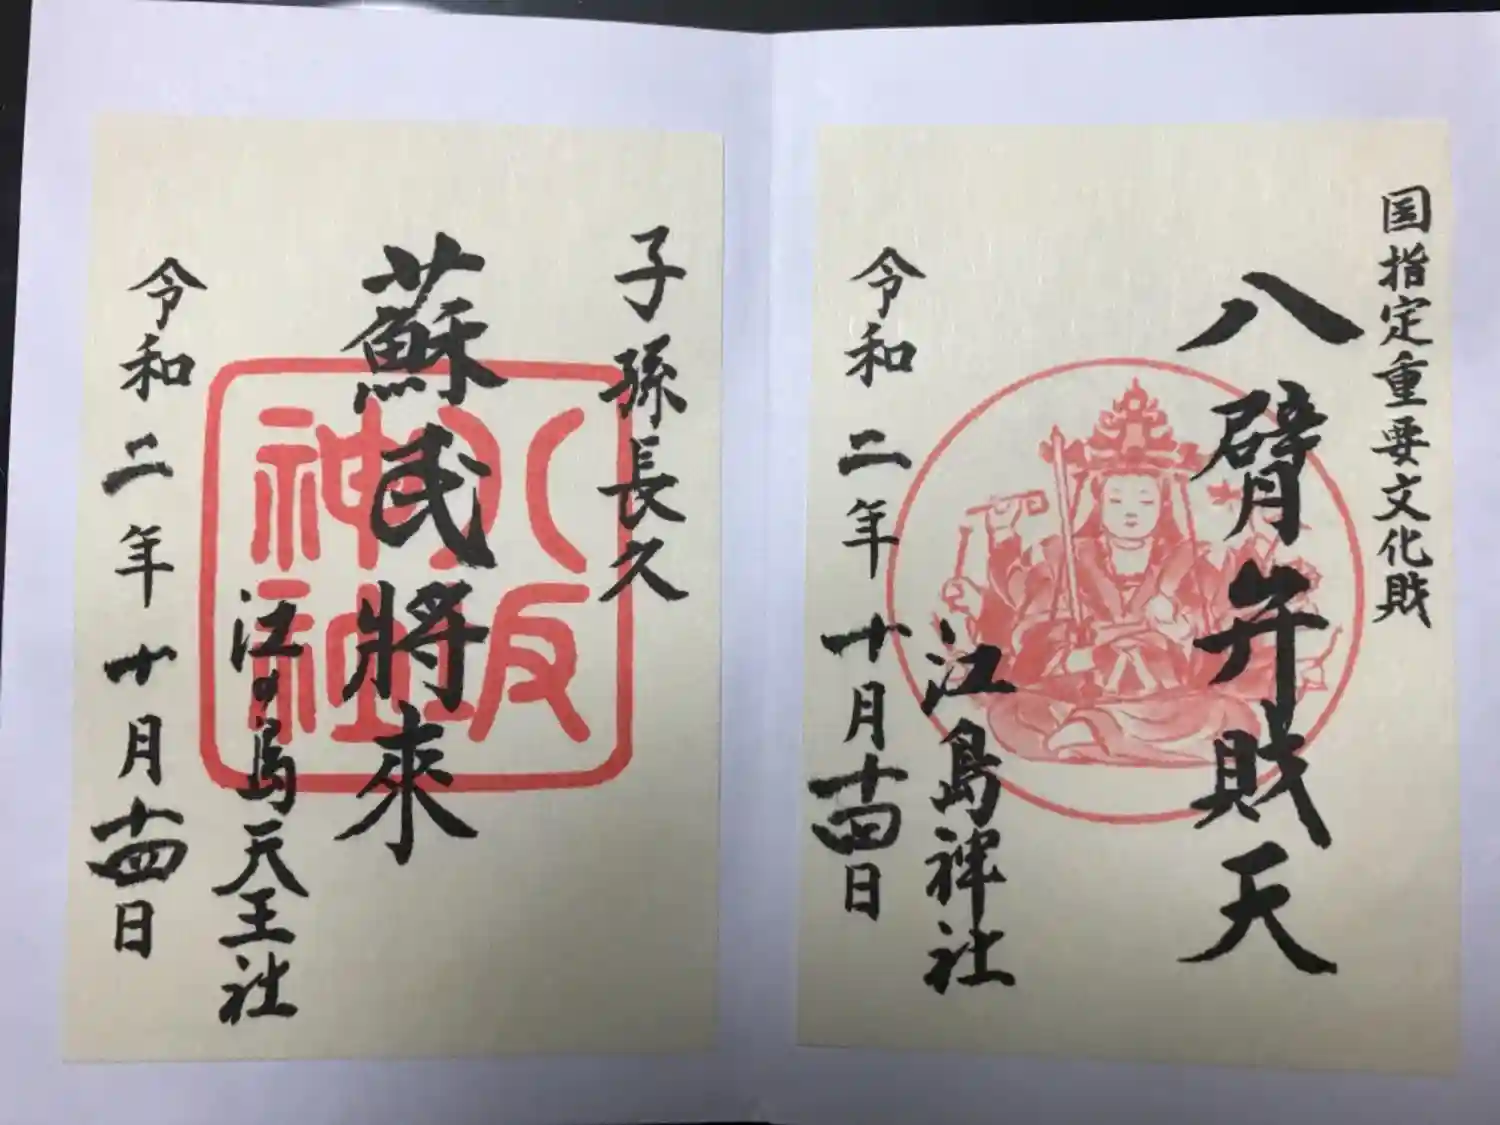 国指定重要文化財
八臂弁財天
江島神社
令和二年十月十四日
子孫長久
蘇民将来
江の島天王社
令和二年十月十四日
八坂神社